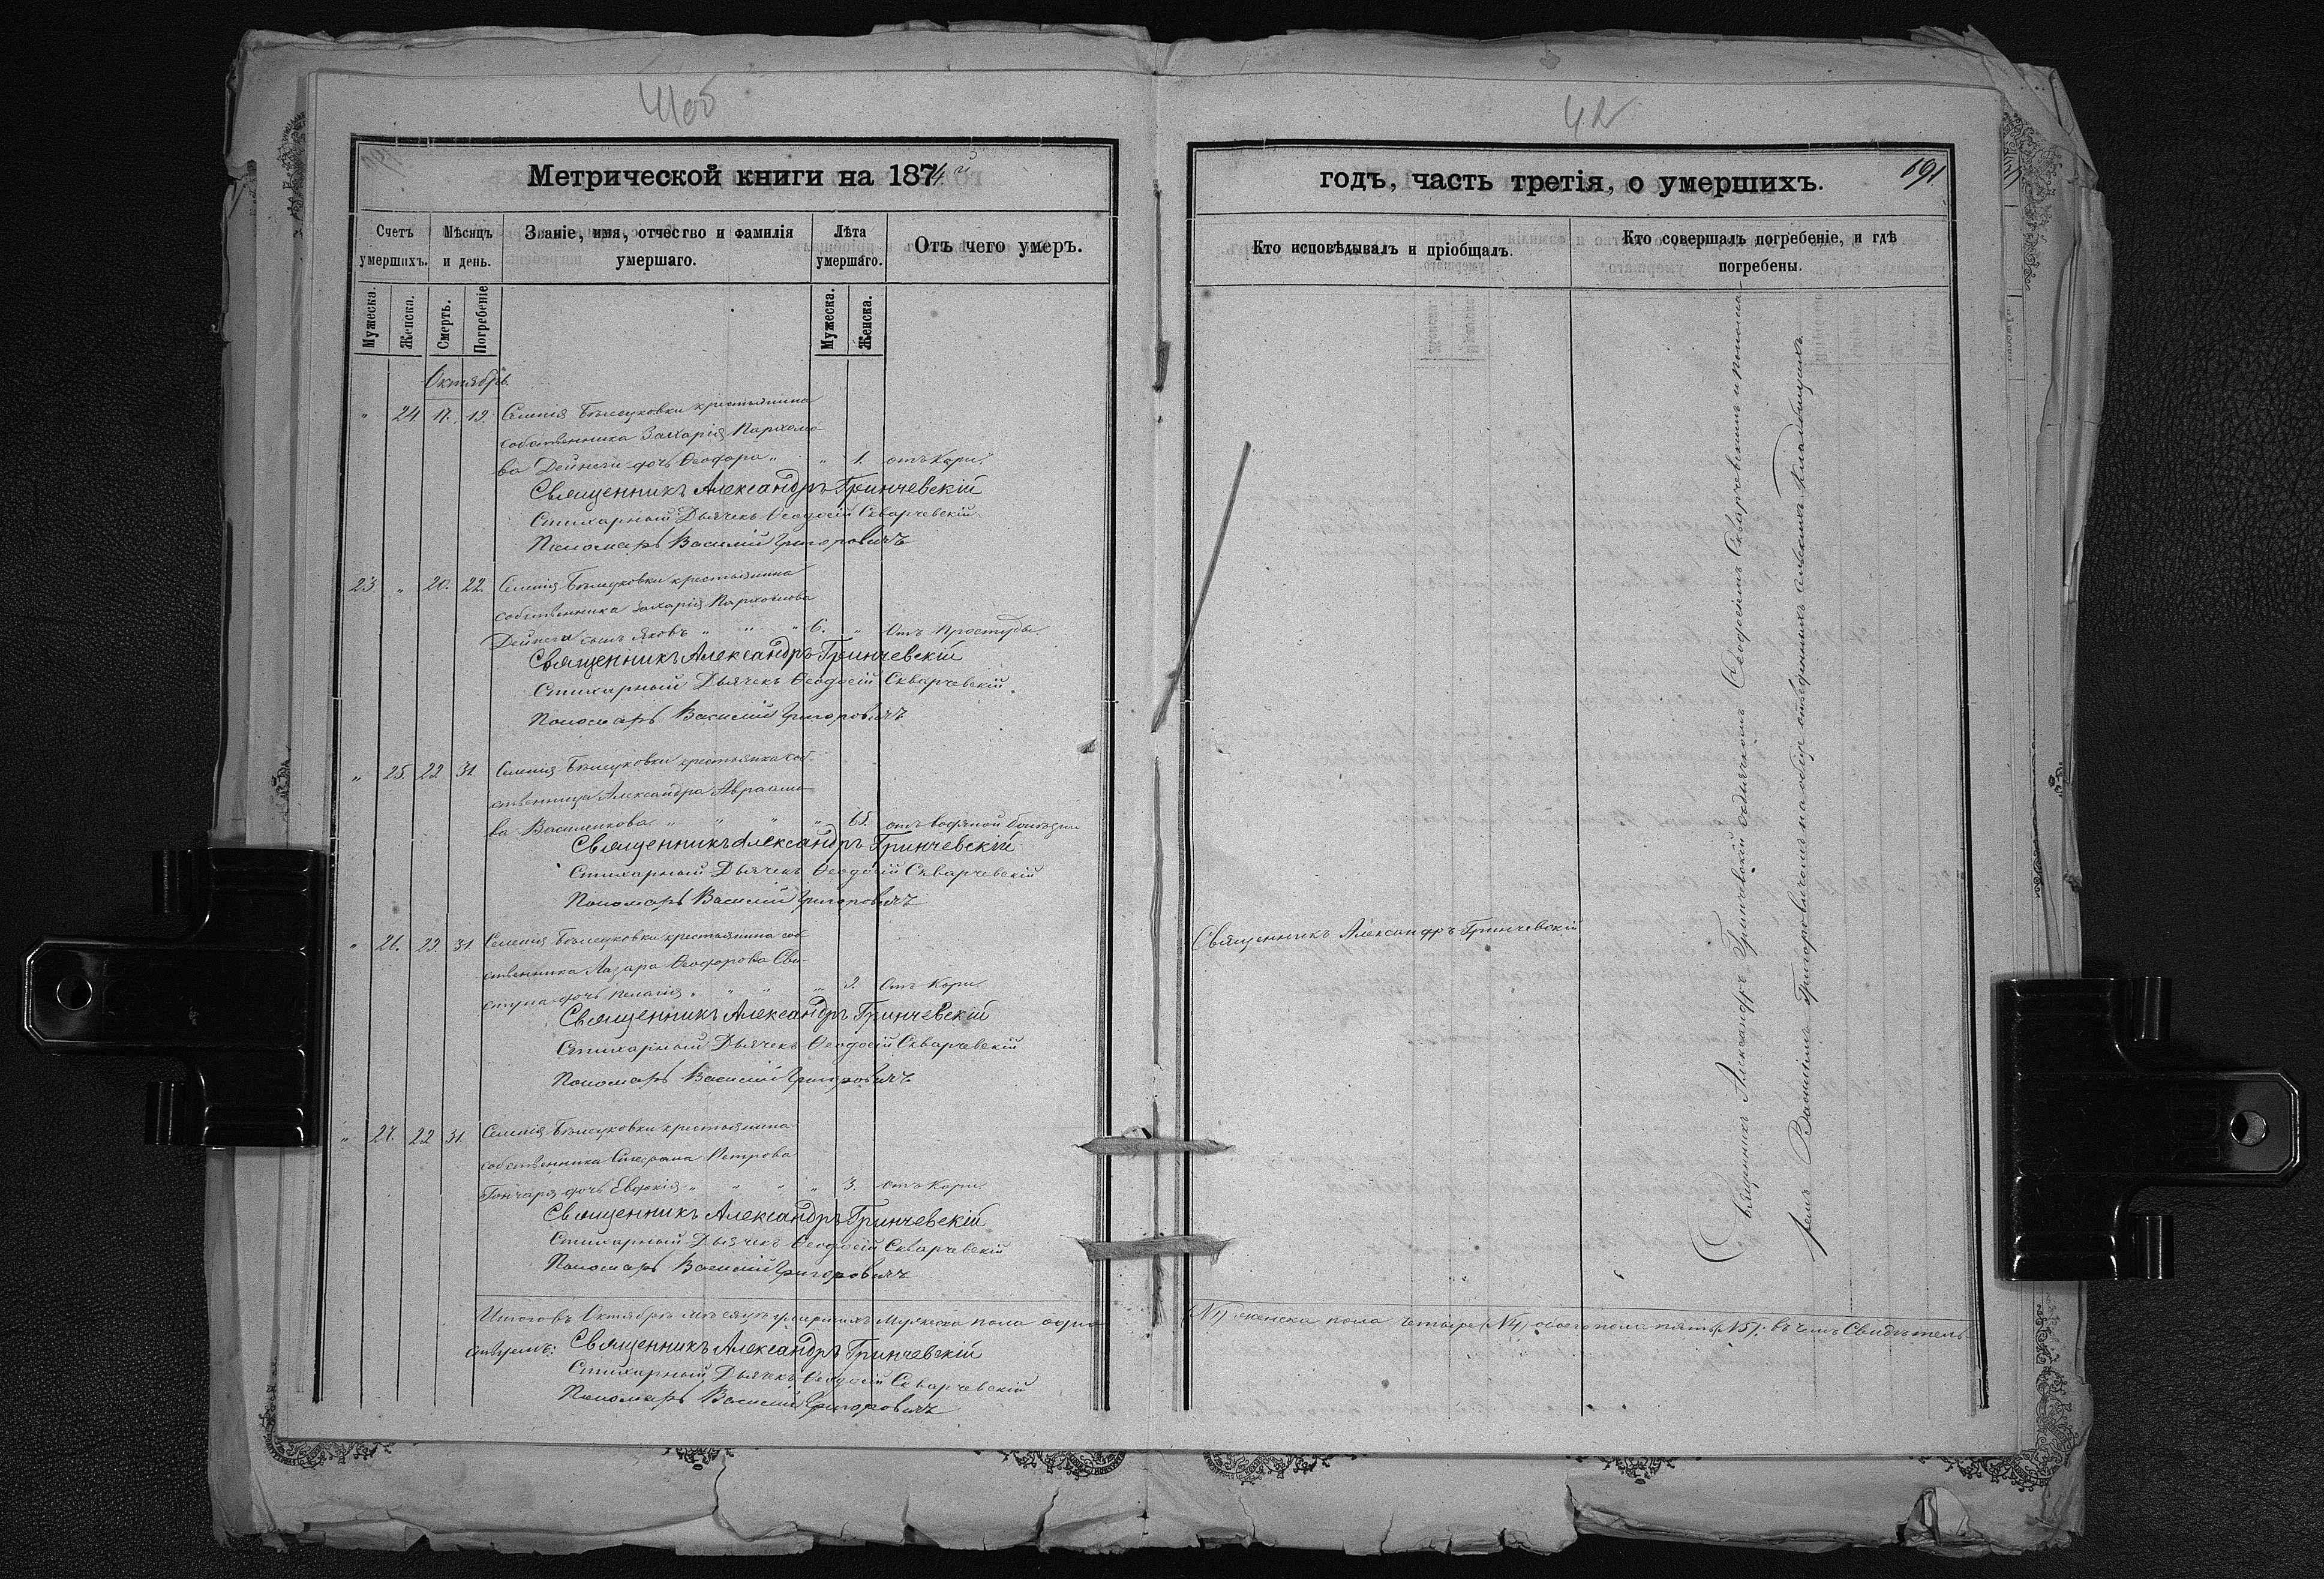 41об
42
Метрической книги на 1874 г
годъ, часть третія, о умершихъ.
191
Счетъ умершихъ.
Мѣсяцъ и день.
Званіе, имя, отчество и фамилія умершаго.
Лѣта умершаго.
Отъ чего умеръ.
Кто исповѣдывалъ и пріобщалъ.
Кто совершалъ погребеніе, и гдѣ погребены.
Мужеска.
Женска.
Смерть.
Погребеніе
Мужеска.
Женска.
Октябрь.
" 24. 17. 19. Селенія крестьянина
собственника Захарія Пархомо-
ва Дейнеги дочь Ѳеодора " " 1. отъ Кори.
Священникъ Александръ Гринчевскій
Стихарный Дьячекъ Ѳеодосій Скварчевскій
Пономарь Василій Григоровичъ
23. " 20. 22. Селенія крестьянина
собственника Захарія Пархомова
Дейнеги сынъ Яковъ " " " 6. " Отъ простуды.
Священникъ Александръ Гринчевскій
Стихарный Дьячекъ Ѳеодосій Скварчевскій.
Пономарь Василій Григоровичъ
" 25. 22 31 Селенія крестьянка соб-
ственница Александра Авраамо-
ва Василенкова " " " " 65. отъ водяной болѣзни
Священникъ Александръ Гринчевскій
Стихарный Дьячекъ Ѳеодосій Скварчевскій
Пономарь Василій Григоровичъ
" 26. 22. 31. Селенія крестьянина соб-
ственника Лазара Ѳеодорова Сви-
стуна дочь Пелагія " " " " 3. Отъ Кори.
Священникъ Александръ Гринчевскій
Стихарный Дьячекъ Ѳеодосій Скварчевскій
Пономарь Василій Григоровичъ
Священникъ Александръ Гринчевскій
" 27. 22 31. Селенія крестьянина
собственника Стефана Петрова
Гончаря дочь Евдокія " " " " 3. отъ Кори.
Священникъ Александръ Гринчевскій
Стихарный Дьячекъ Ѳеодосій Скварчевскій
Пономарь Василій Григоровичъ
Священникъ Александръ Гринчевскій съ дьячкомъ Ѳеодосіемъ Скварчевскимъ и понома-
ремъ Василіемъ Григоровичемъ на обще сельскихъ Кладбищахъ.
Итого въ Октябрѣ мѣсяцѣ умершихъ мужеска пола одно
(№1) женска пола четыре (№4) обоего пола пять (№5). въ чемъ Свидѣтель
ствуемъ: Священникъ Александръ Гринчевскій
Стихарный Дьячекъ Ѳеодосій Скварчевскій
Пономарь Василій Григоровичъ